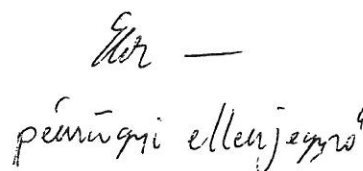 pénzügyi ellenjegyző